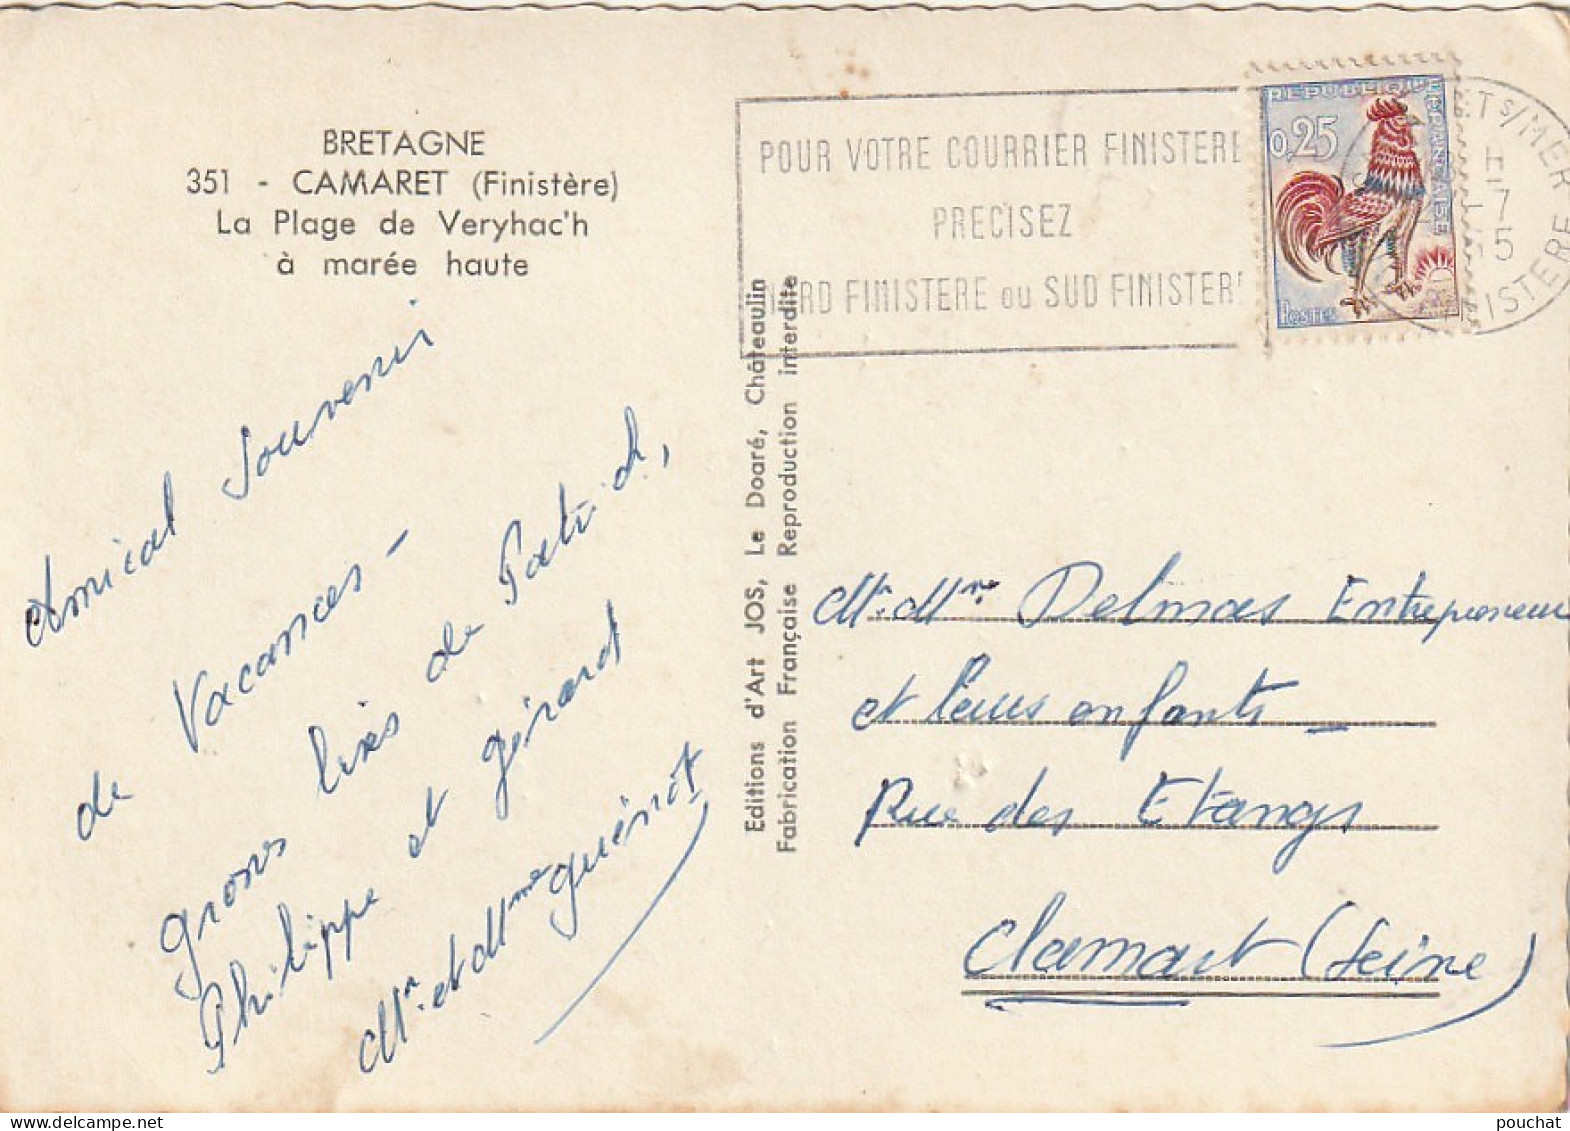 BRETAGNE
351 - CAMARET (Finistère)
La Plage de Veryhac'h
à marée haute
Amical Souvenir
de Vacances -
gross bises de Patrick,
Philippe et Gérard
Mr. et Mme Guénot
Editions d'Art JOS, Le Doaré, Châteaulin
Fabrication Française Reproduction interdite
POUR VOTRE COURRIER FINISTERE
PRECISEZ
NORD FINISTERE ou SUD FINISTERE
REPUBLIQUE FRANÇAISE
0,25
Postes
ET S/MER
H
7
5
ISTERE
Mr. Mme. Delmas Entrepreneur
et leurs enfants
Rue des Etangs
Clamart (Seine)
pouchat